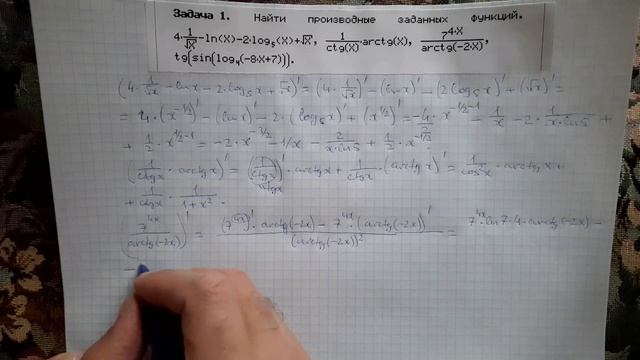 Задача 1. Найти производные заданных функций.
4·1/√x-ln(X)-2·log₅(X)+√x, 1/ctg(X)·arctg(X), 7^(4·X)/arctg(-2·X),
tg(sin(log₄(-8·X+7))).
(4·1/√x - ln x - 2·log₅x + √x)' = (4·1/√x)' - (ln x)' - (2 log₅x)' + (√x)' =
= 4·(x^(-1/2))' - (ln x)' - 2·(log₅x)' + (x^(1/2))' = -4/2·x^(-1/2-1) - 1/x - 2·1/(x·ln5) +
+ 1/2·x^(1/2-1) = -2·x^(-3/2) - 1/x - 2/(x·ln5) + 1/2·x^(-1/2).
(1/ctgx · arctgx)' = (1/ctgx)'·arctgx + 1/ctgx·(arctgx)' = 1/cos²x · arctgx +
+ 1/ctgx · 1/(1+x²).
(7^(4x)/arctg(-2x))' = ((7^(4x))'·arctg(-2x) - 7^(4x)·(arctg(-2x))')/(arctg(-2x))² = 7^(4x)·ln7·4·arctg(-2x) -